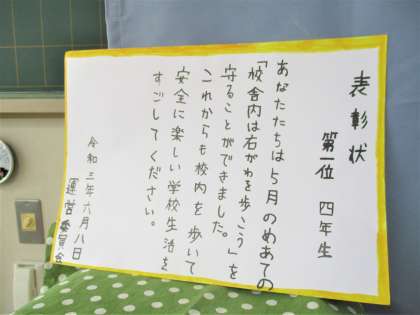 表彰状
第一位 四年生
あなたたちは5月のめあての
「校舎内は右がわを歩こう」を
守ることができました。
これからも校内を歩いて
安全に楽しい学校生活を
すごしてください。
令和三年六月八日
運営委員会